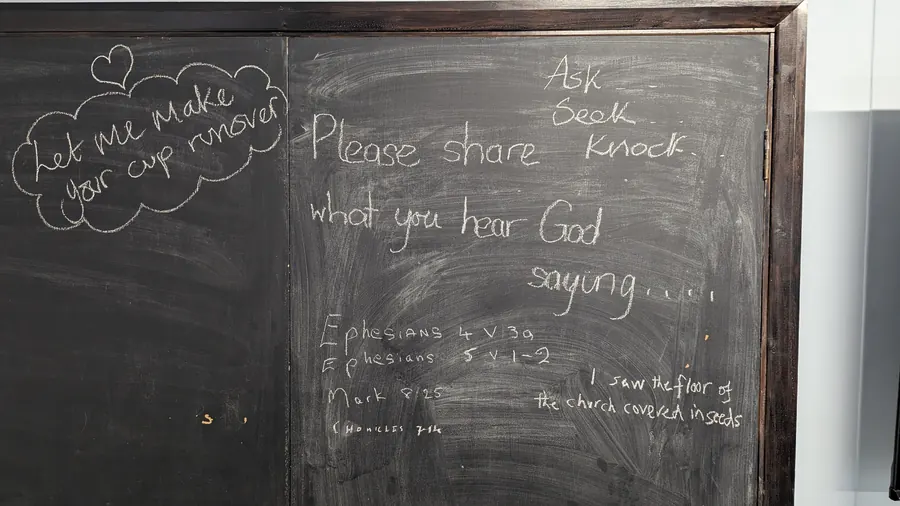 Let me make
your cup runover
Ask
Seek
Knock..
Please share
what you hear God
saying.....
Ephesians 4 v 30
Ephesians 5 v 1-2
Mark 8/25
I saw the floor of
the church covered in seeds